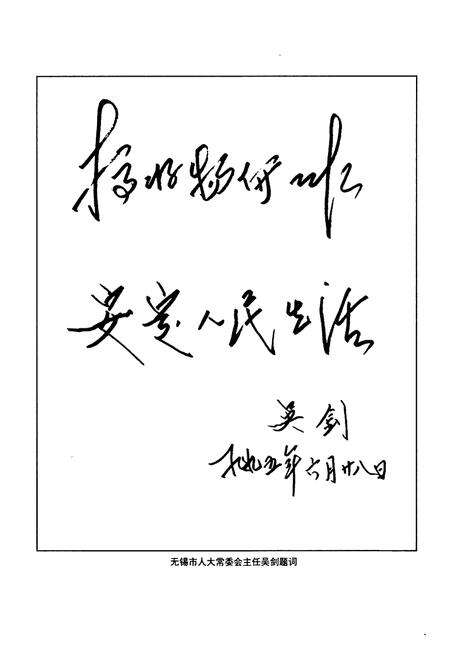 搞好物价工作
安定人民生活
吴剑
一九九五年六月廿八日
无锡市人大常委会主任吴剑题词